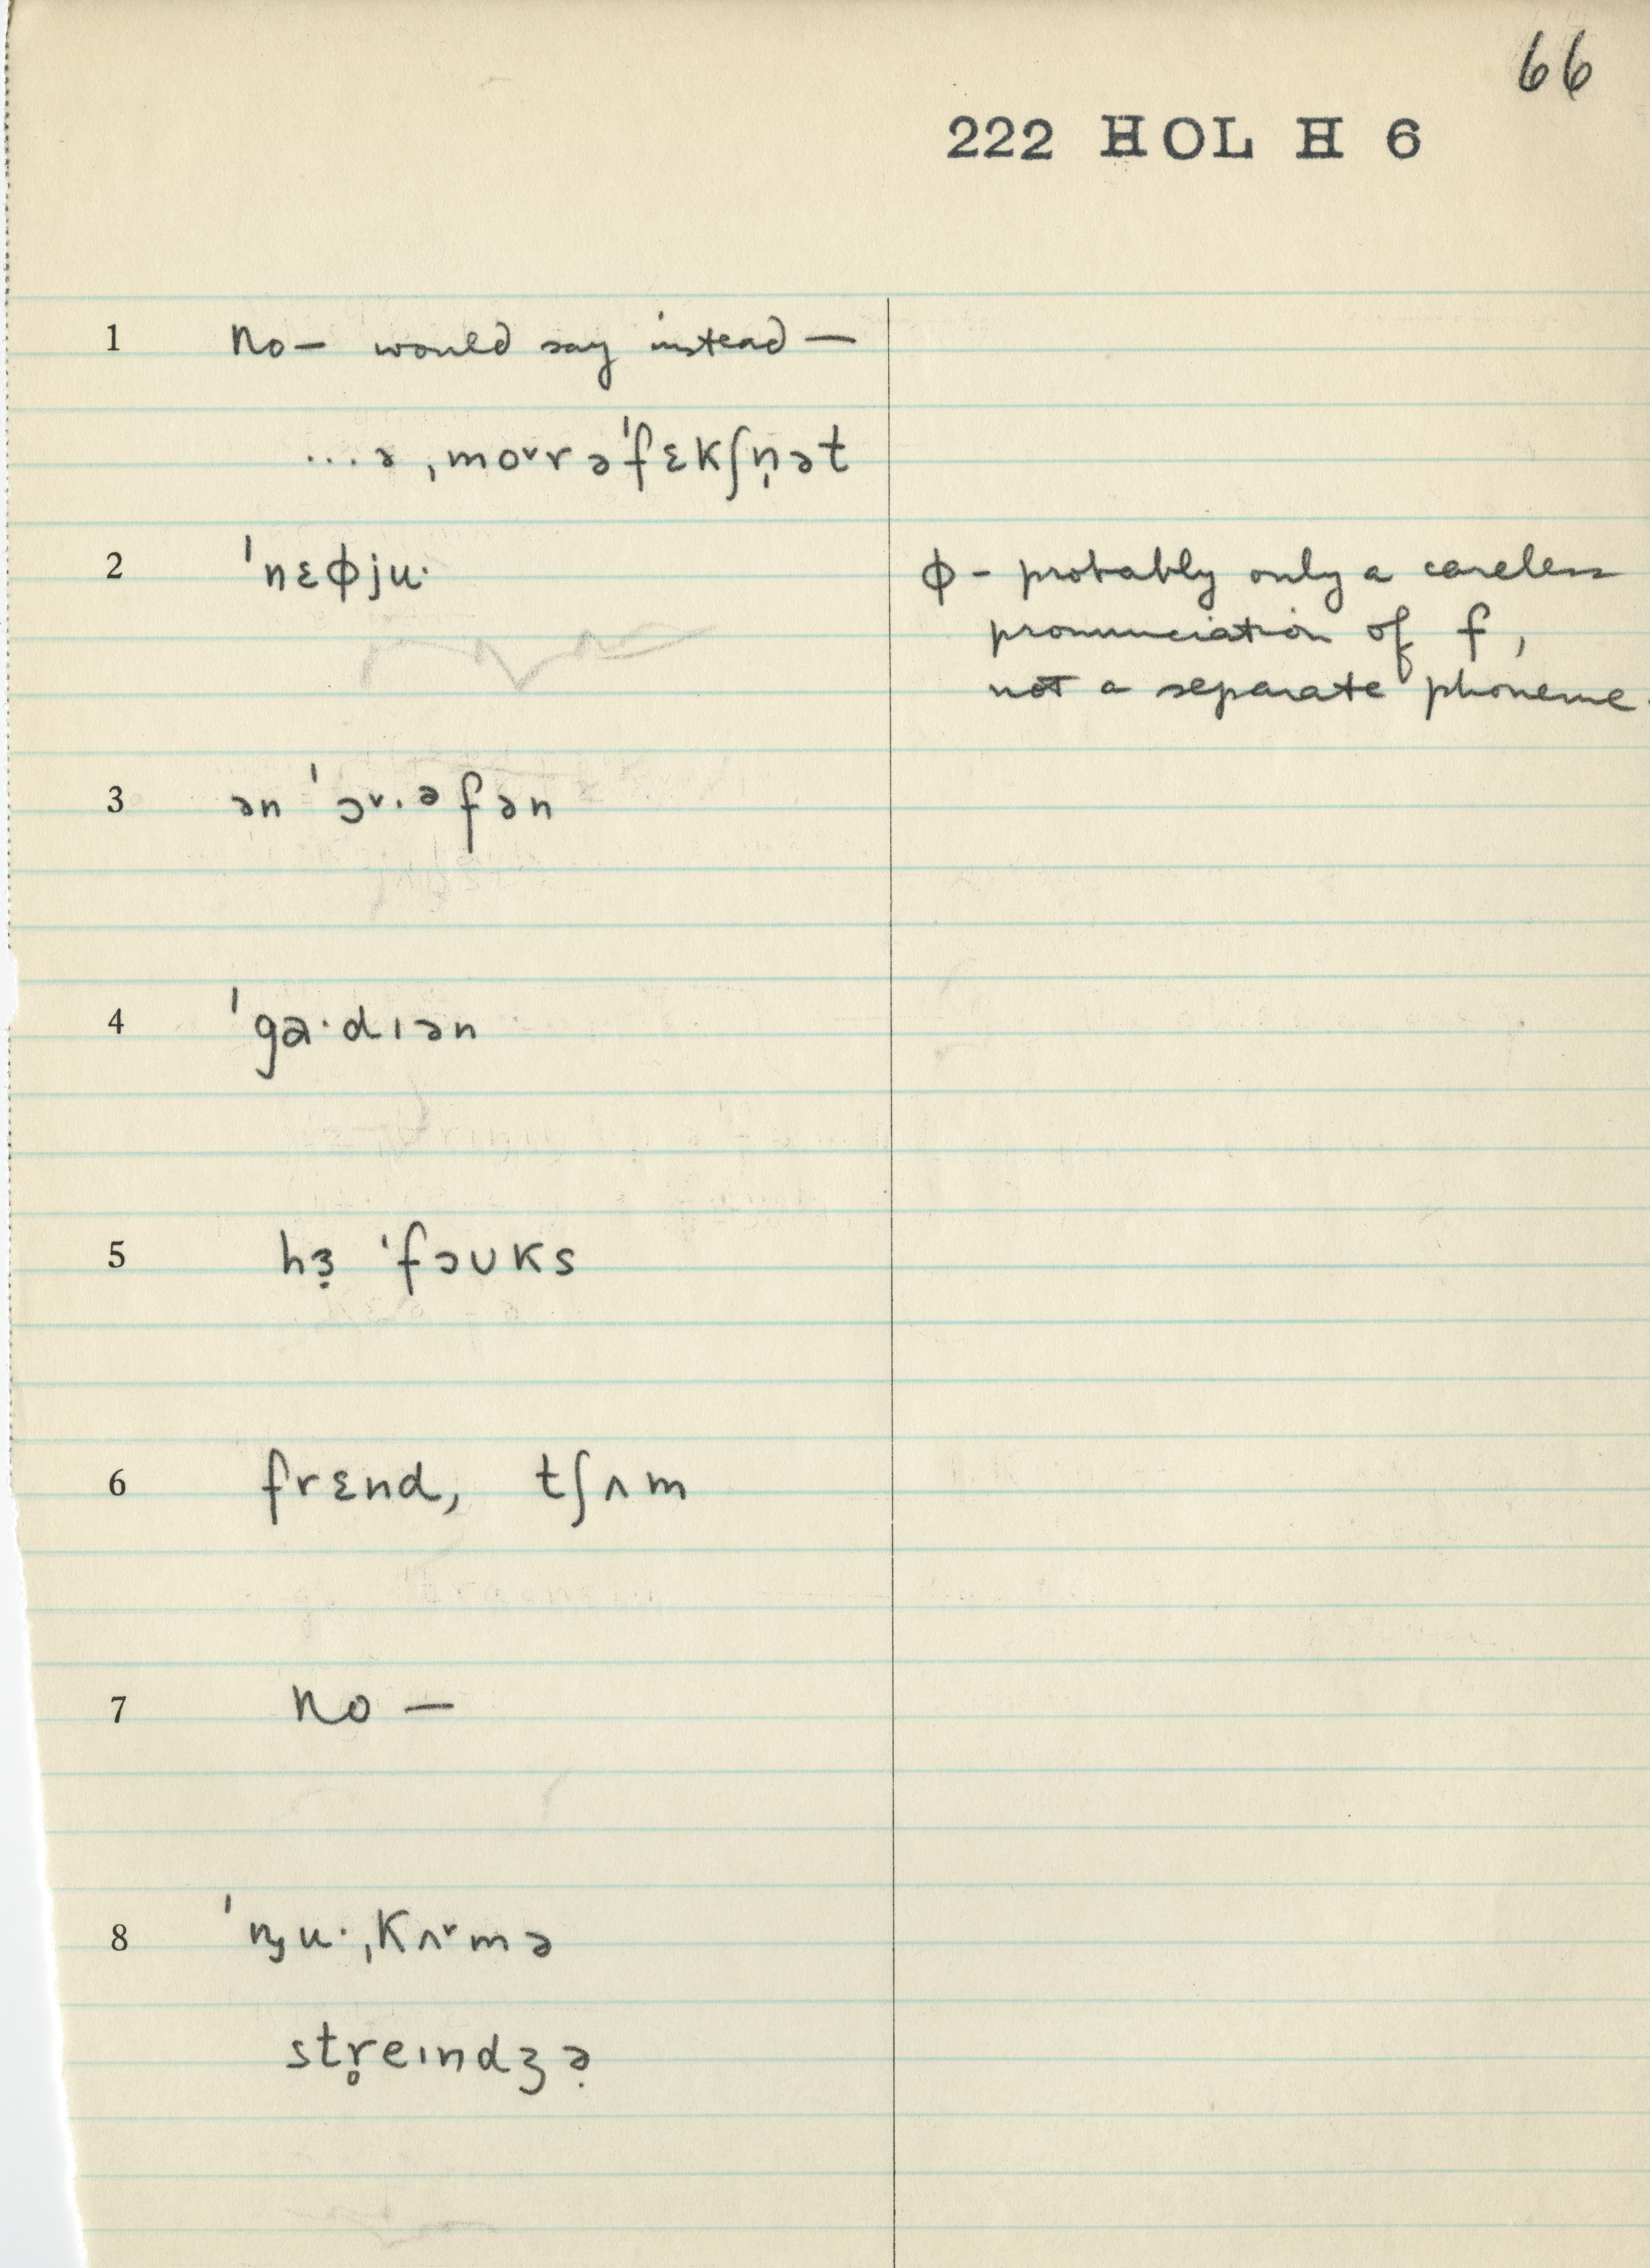 66
222 HOL H 6
1 No— would say instead —
...ə ˌmoᵛrrəˈfɛkʃn̩ət
2 ˈnɛɸju· ɸ - probably only a careless
pronunciation of f,
not a separate phoneme.
3 ən ˈɔᵛ·ᵊfən
4 ˈga·dɪən
5 hɜ̣ ˈfɔʊks
6 frɛnd, tʃʌm
7 No —
8 ˈɲu·ˌkʌᵛmə
str̥eɪndʒə̣